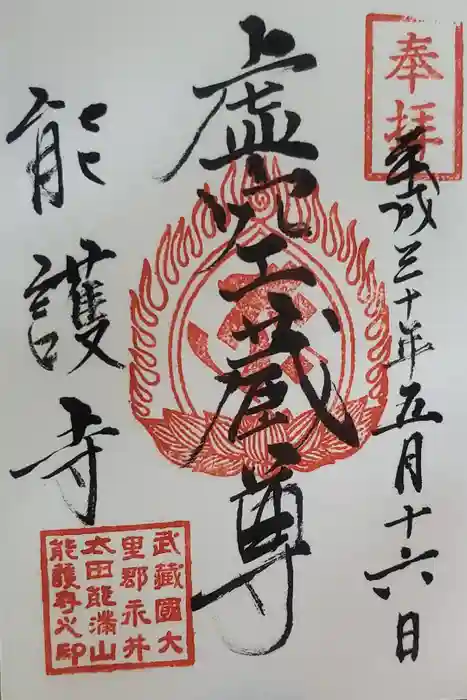 奉拝
平成三十年五月十六日
虚空蔵尊
能護寺
武蔵國大
里郡永井
太田能満山
能護寺之印